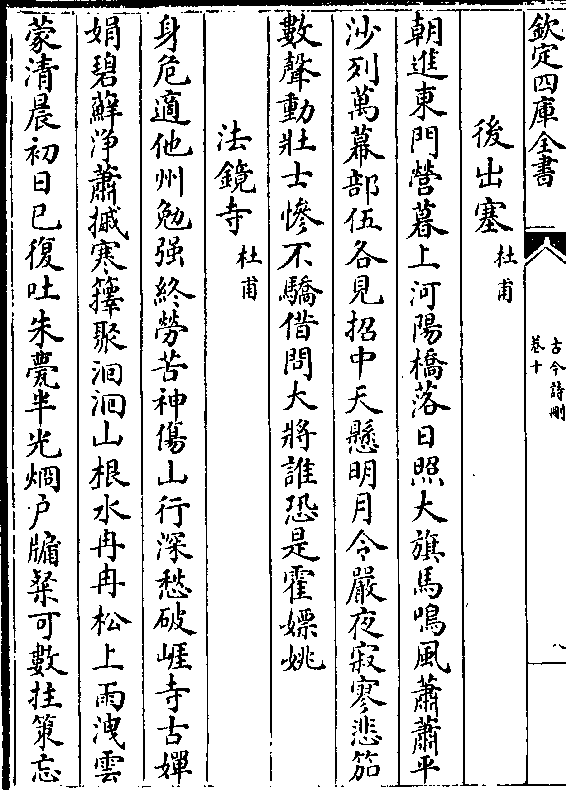 欽定四庫全書
古今詩刪
卷十
八
後出塞
杜甫
朝進東門營暮上河陽橋落日照大旗馬鳴風蕭蕭平
沙列萬幕部伍各見招中天懸明月令嚴夜寂寥悲笳
數聲動壯士慘不驕借問大將誰恐是霍嫖姚
法鏡寺
杜甫
身危適他州勉强終勞苦神傷山行深愁破崖寺古嬋
娟碧蘚淨蕭摵寒籜聚洄洄山根水冉冉松上雨洩雲
蒙清晨初日已復吐朱甍半光烱户牖粲可數拄策忘